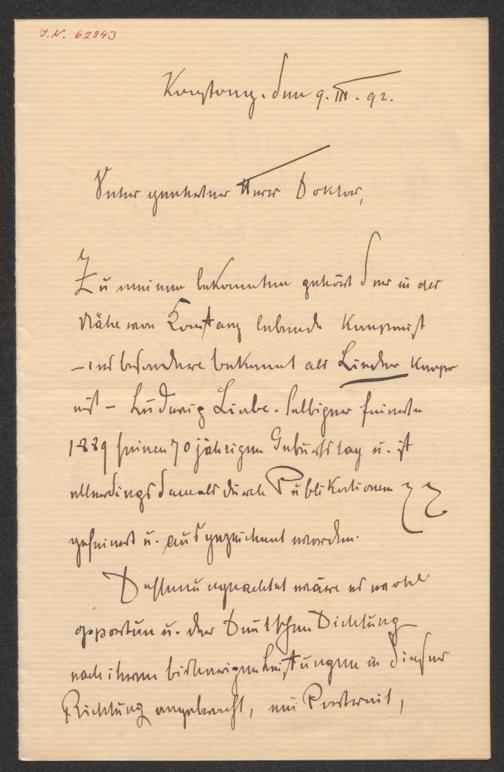 I.N. 62843
Konstanz. den 9. III. 92.
Sehr geehrter Herr Doktor,
Zu meinen bekannten gehört der in der
Nähe von Konstanz lebende Komponist
– insbesondere bekannt als Lieder Kompo
nist – Ludwig Liebe. Selbiger feierte
1889 seinen 70 jährigen Geburtstag u. ist
allerdings damals durch Publikationen
gefeiert u. ausgezeichnet worden.
Dessenungeachtet wäre es wohl
opportun u. der Deutschen Dichtung
nach ihren bisherigen Leistungen in dieser
Richtung angebracht, ein Portrait,